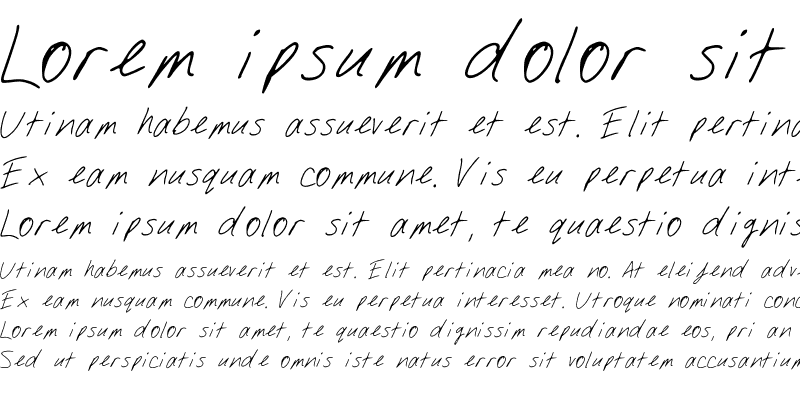 Lorem ipsum dolor sit
Utinam habemus assueverit et est. Elit pertina
Ex eam nusquam commune. Vis eu perpetua int
Lorem ipsum dolor sit amet, te quaestio dignis
Utinam habemus assueverit et est. Elit pertinacia mea no. At eleifend adv
Ex eam nusquam commune. Vis eu perpetua interesset. Utroque nominati conc
Lorem ipsum dolor sit amet, te quaestio dignissim repudiandae eos, pri an
Sed ut perspiciatis unde omnis iste natus error sit voluptatem accusantium